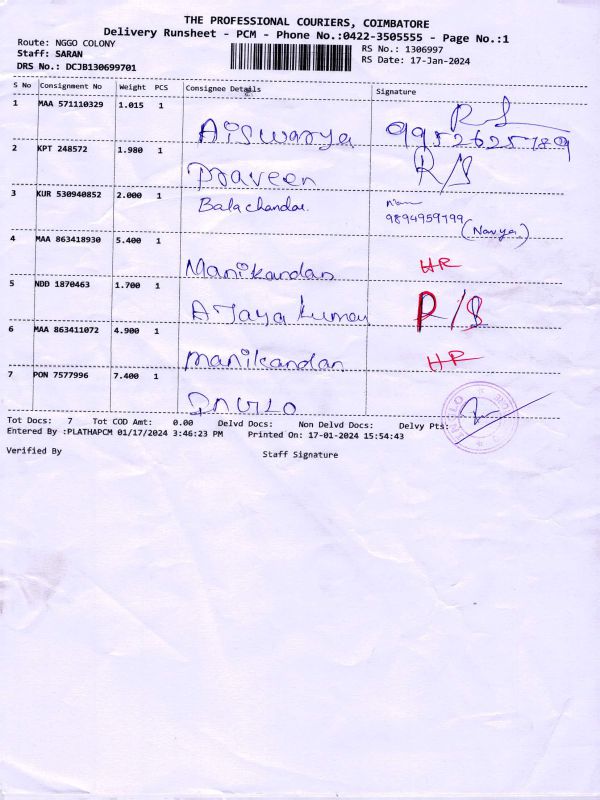 THE PROFESSIONAL COURIERS, COIMBATORE
Delivery Runsheet - PCM - Phone No.:0422-3505555 - Page No.:1
Route: NGGO COLONY
RS No.: 1306997
Staff: SARAN
RS Date: 17-Jan-2024
DRS No.: DCJB130699701
S No Consignment No Weight PCS Consignee Details Signature
1 MAA 571110329 1.015 1 Aiswarya R/S 9952625789
2 KPT 248572 1.980 1 Praveen R/S
3 KUR 530940852 2.000 1 Balachandar 9894959799 (Navya)
4 MAA 863418930 5.400 1 Manikandan HR
5 NDD 1870463 1.700 1 AJaya kumar R/S
6 MAA 863411072 4.900 1 manikandan HR
7 PON 7577996 7.400 1
Tot Docs: 7 Tot COD Amt: 0.00 Delvd Docs: Non Delvd Docs: Delvy Pts:
Entered By :PLATHAPCM 01/17/2024 3:46:23 PM Printed On: 17-01-2024 15:54:43
Verified By Staff Signature